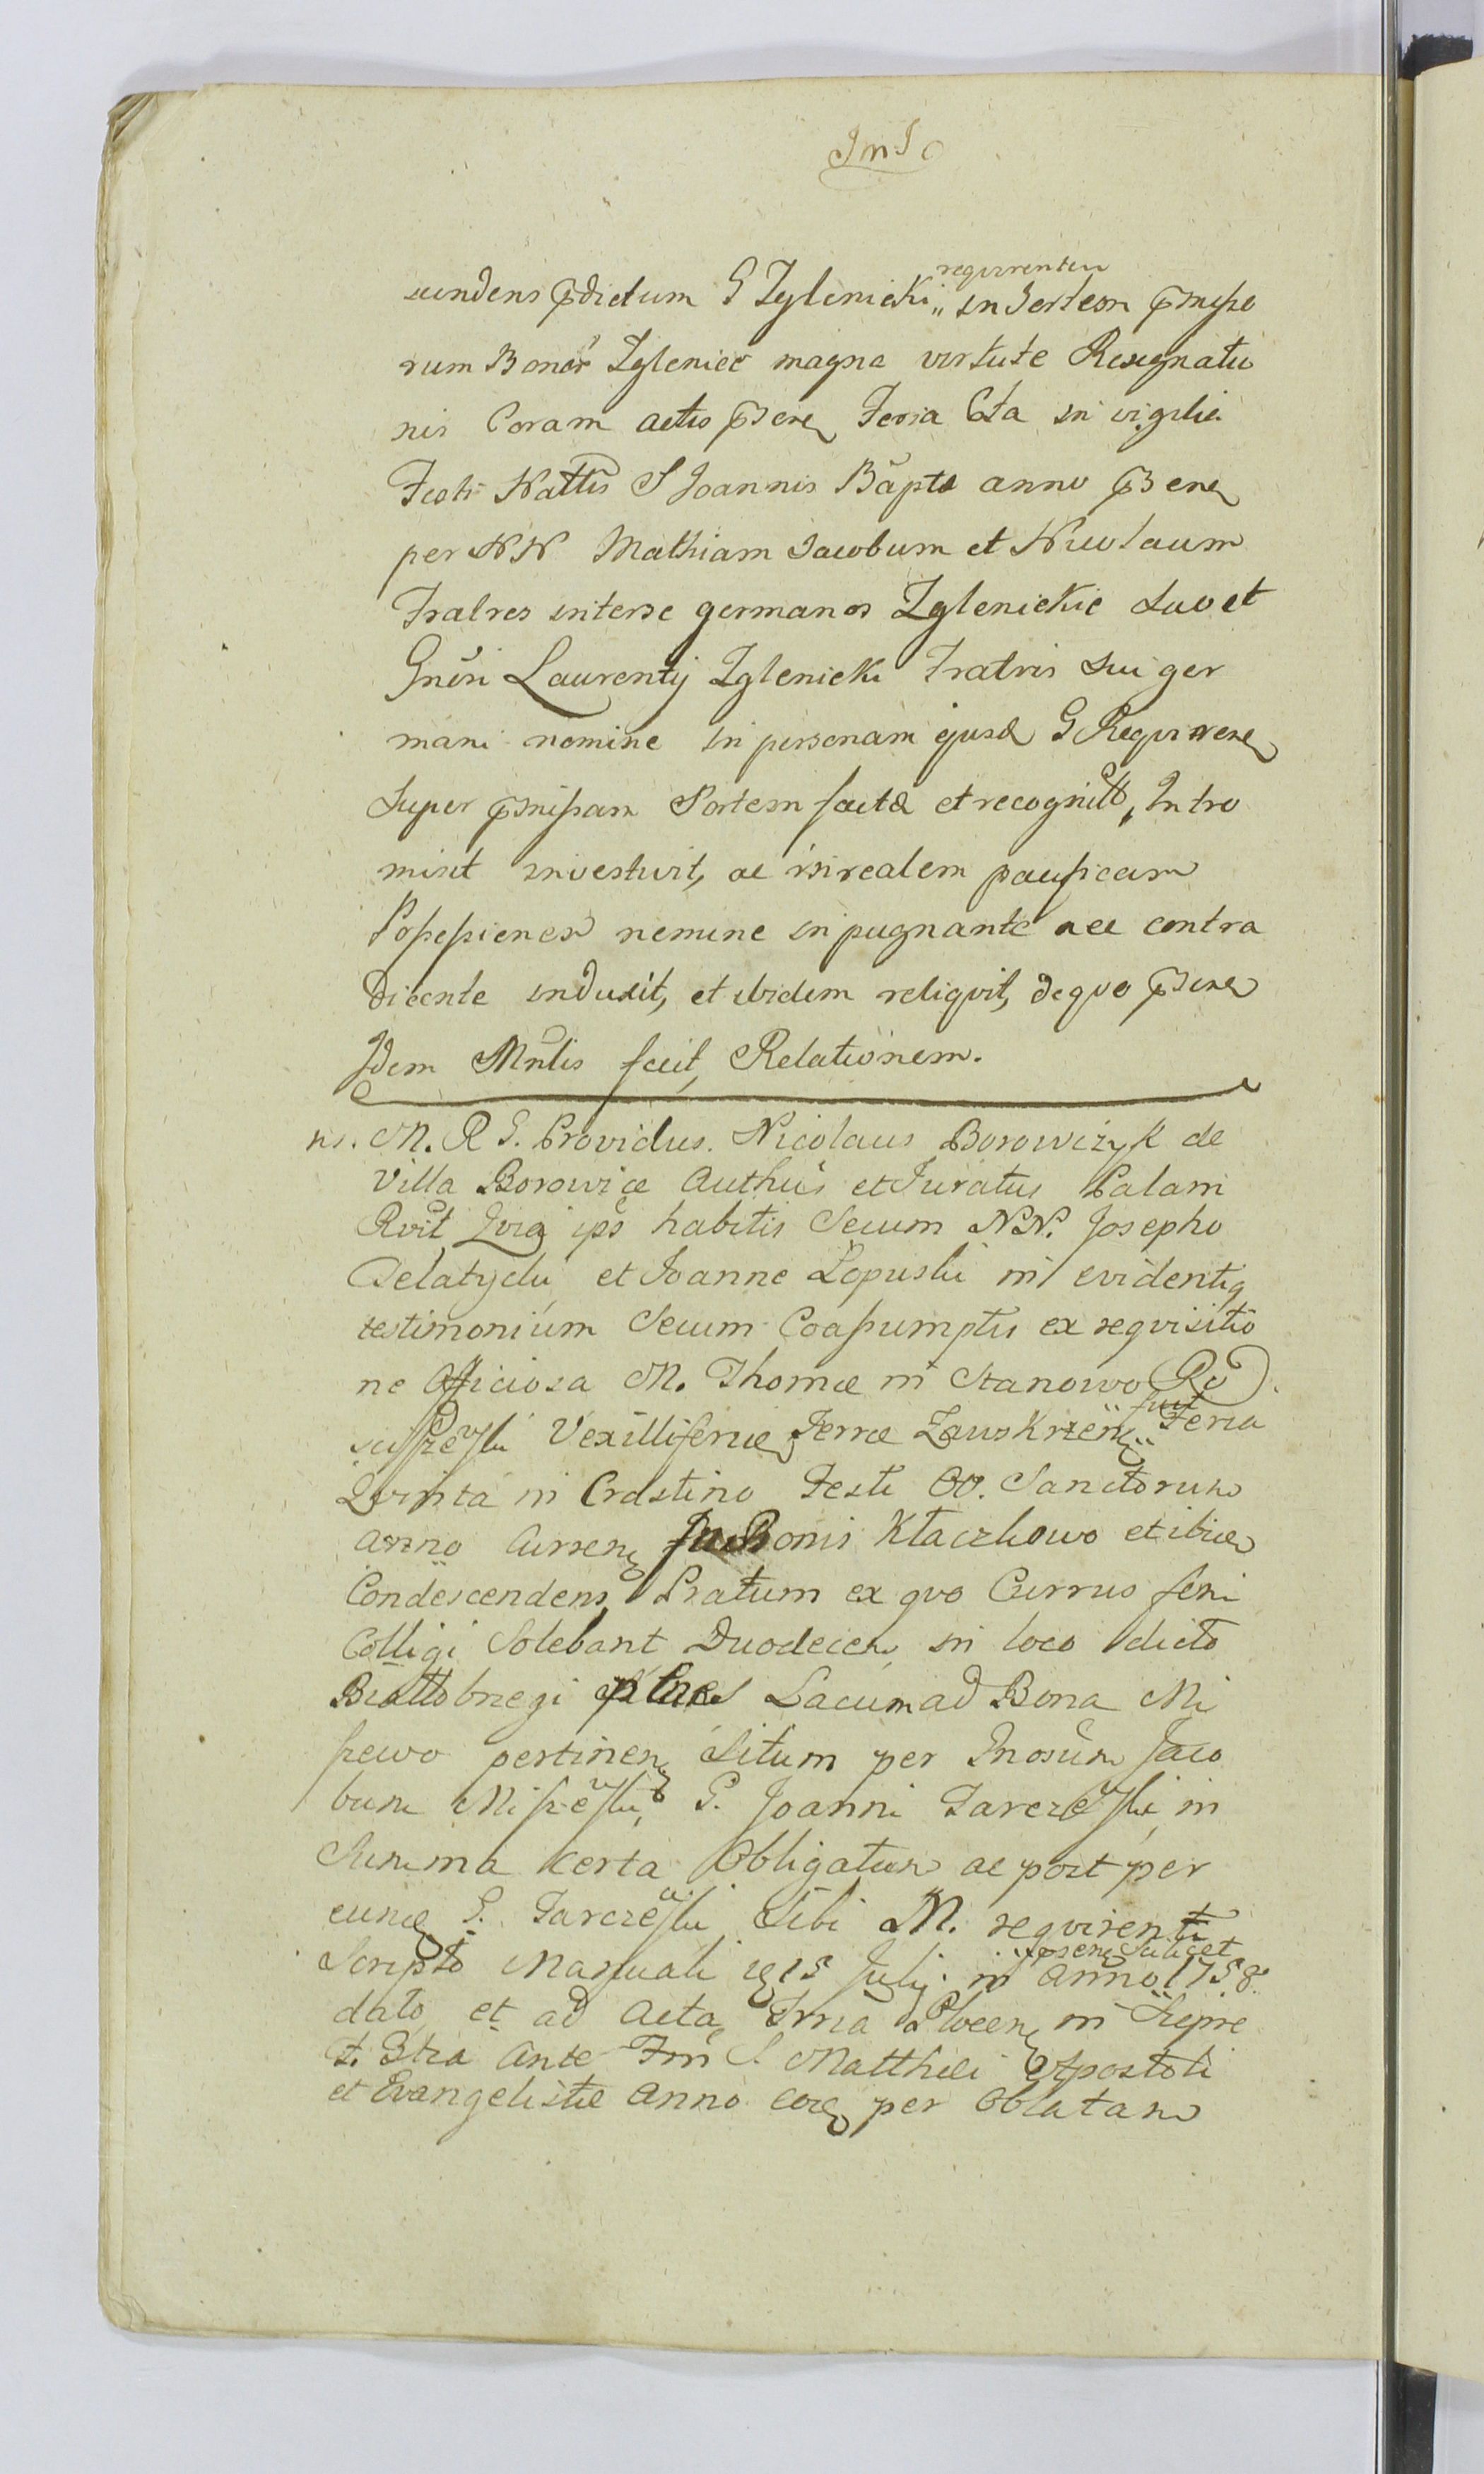 sundens pdictum G Zglenicki „ requirentem in Sortem pmisso
rum Bonor Zglenice magna virtute Resignatio
nis Coram actis psen Feria 6ta in vigilia
Festi Nattis S Joannis Bapta anno psen
per NN Mathiam Jacobum et Nicolaum
Fratres interse germanos Zglenickie suo et
Gnesi Laurentij Zglenicki Fratris sui ger
mani nomine in personam ejusd G Requiren
super pmissam Sortem factd et recognit, Intro
misit investivit, ac in realem pacificam
Possessionem nemine inpugnante nec contra
Dicente induxit, et ibidem reliquit, de quo psen
Idem Mnlis fecit Relationem.
ns. M. R G. Providus Nicolaus Borowiżyk de
Villa Borowice Authus et Juratus Palam
Rvit Qvia ips habitis Secum NN. Josepho
Delatycki et Joanne Łopuski in evidentiq
testimonium Secum Coassumptis ex reqvisitio
ne Officiosa M. Thomæ in Stanowo Ro
Vexilliferiæ Terræ Zawskrzen „ fuit Feria
Qvinta in Crastino Festi OO. Sanctorum
anno Curren in Bonis Kłaczkowo et ibid
Condescendens Pratum ex qvo Currus feni
Colligi Solebant Duodecem in loco dicto
penes Lacum ad Bona Mi
szewo pertinen Situm per Gnosum Jaco
bum Miszeski G. Joanni Tarczeski in
Summa Certa Obligatum ac post per
eund G. Tarczeski Sibi M. reqvirenti
Scripto Manuali 15 Julij in „ psen Scilicet anno 1758
dato et ad Acta Trria Plocen in Siepre
F. 3tia Ante Fm S Matthæi Apostoli
et Evangelistæ Anno eod per Oblatam